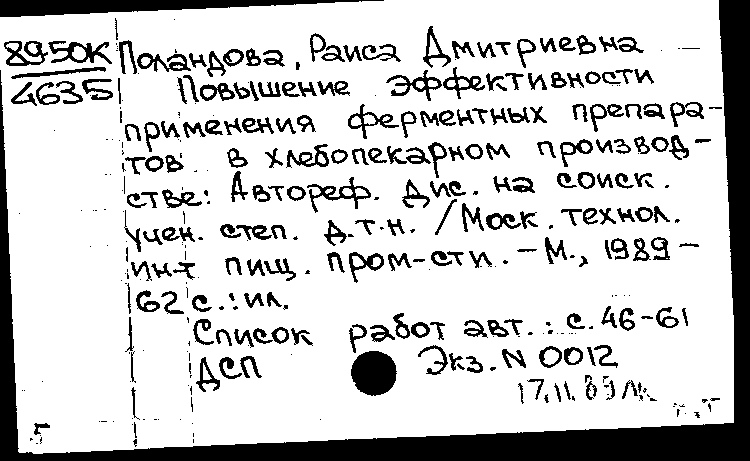 8950К Поландова, Раиса Дмитриевна
4635 Повышение эффективности
применения ферментных препара-
тов в хлебопекарном производ-
стве: Автореф. дис. на соиск.
учен. степ. д.т.н. / Моск. технол.
ин-т пищ. пром-сти. - М., 1989 -
62 с.: ил.
Список работ авт.: с. 46-61
ДСП Экз. N 0012
17.11.89
5